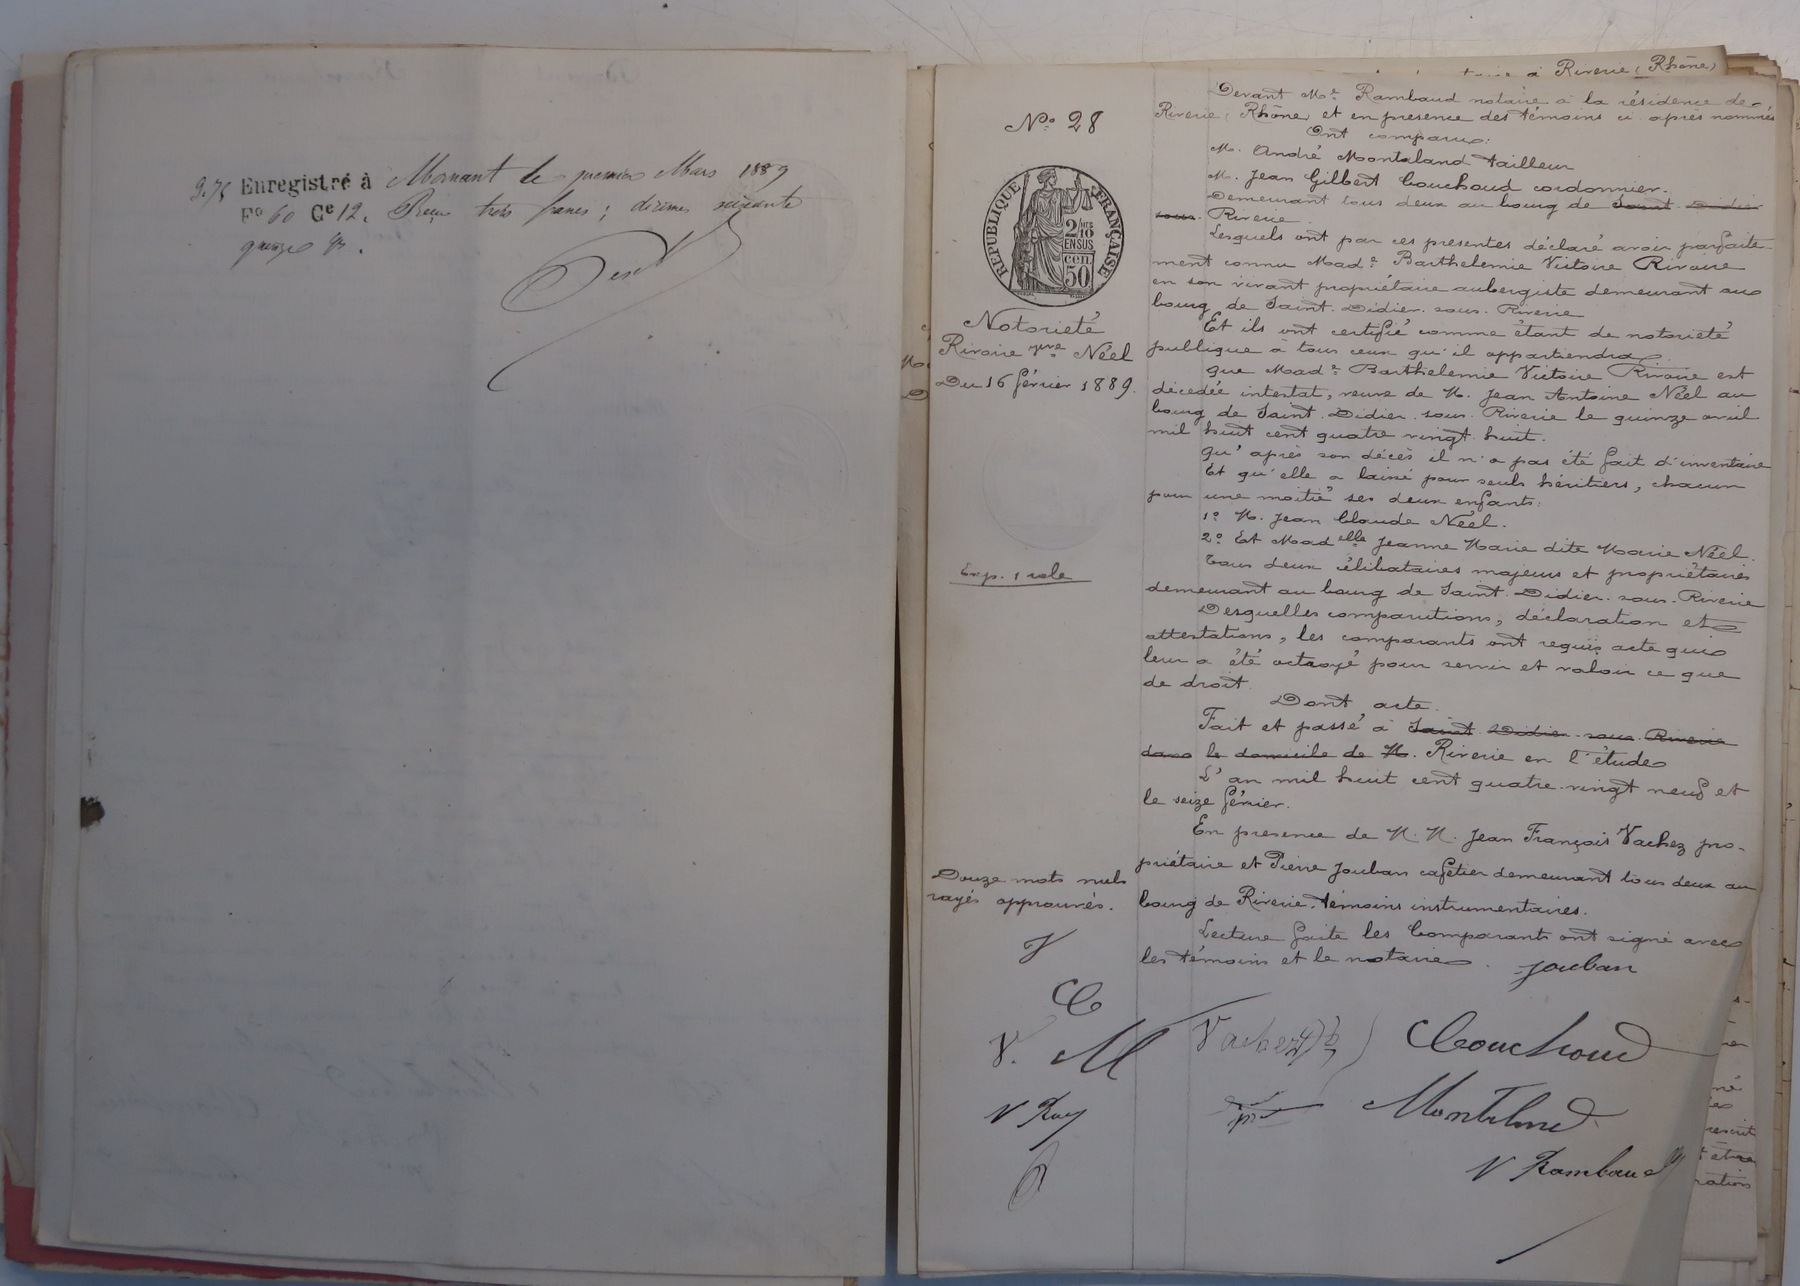 3.75 Enregistré à Mornant le premier Mars 1889
Fo 60 Ce 12. Reçu trois francs ; décimes soixante
quinze
à Riverie (Rhône)
No 28
RÉPUBLIQUE FRANÇAISE
2/10 EN SUS
50 cen.
Notoriété
Rivoire vve Néel
Du 16 février 1889.
Exp. 1 role
Devant Me Rambaud notaire à la résidence de
Riverie (Rhône) et en présence des témoins ci-après nommés
Ont comparu:
M. André Montaland tailleur
M. Jean Gilbert Couchoud cordonnier.
Demeurant tous deux au bourg de Saint Didier
sous Riverie.
Lesquels ont par ces présentes déclaré avoir parfaite-
ment connu Made Barthelemie Victoire Rivoire
en son vivant propriétaire aubergiste demeurant au
bourg de Saint-Didier-sous-Riverie
Et ils ont certifié comme étant de notoriété
publique à tous ceux qu'il appartiendra
que Made Barthelemie Victoire Rivoire est
décédée intestat, veuve de M. Jean Antoine Néel au
bourg de Saint-Didier-sous-Riverie le quinze avril
mil huit cent quatre vingt huit.
qu'après son décès il n'a pas été fait d'inventaire
Et qu'elle a laissé pour seuls héritiers, chacun
pour une moitié ses deux enfants:
1o M. Jean Claude Néel.
2o Et Madelle Jeanne Marie dite Marie Néel.
Tous deux célibataires majeurs et propriétaires
demeurant au bourg de Saint-Didier-sous-Riverie
Desquelles comparutions, déclaration et
attestations, les comparants ont requis acte qui
leur a été octroyé pour servir et valoir ce que
de droit.
Dont acte.
Fait et passé à Saint Didier sous Riverie
dans le domicile de M. Riverie en l'étude
L'an mil huit cent quatre-vingt neuf et
le seize février.
En présence de M. M. Jean François Vachez pro-
priétaire et Pierre Jouban cafetier demeurant tous deux au
bourg de Riverie, témoins instrumentaires.
Lecture faite les Comparants ont signé avec
les témoins et le notaire.
Douze mots nuls
rayés approuvés.
J
C
V. M
V Ray
Jouban
Vachez
Couchoud
Montaland
V Rambaud